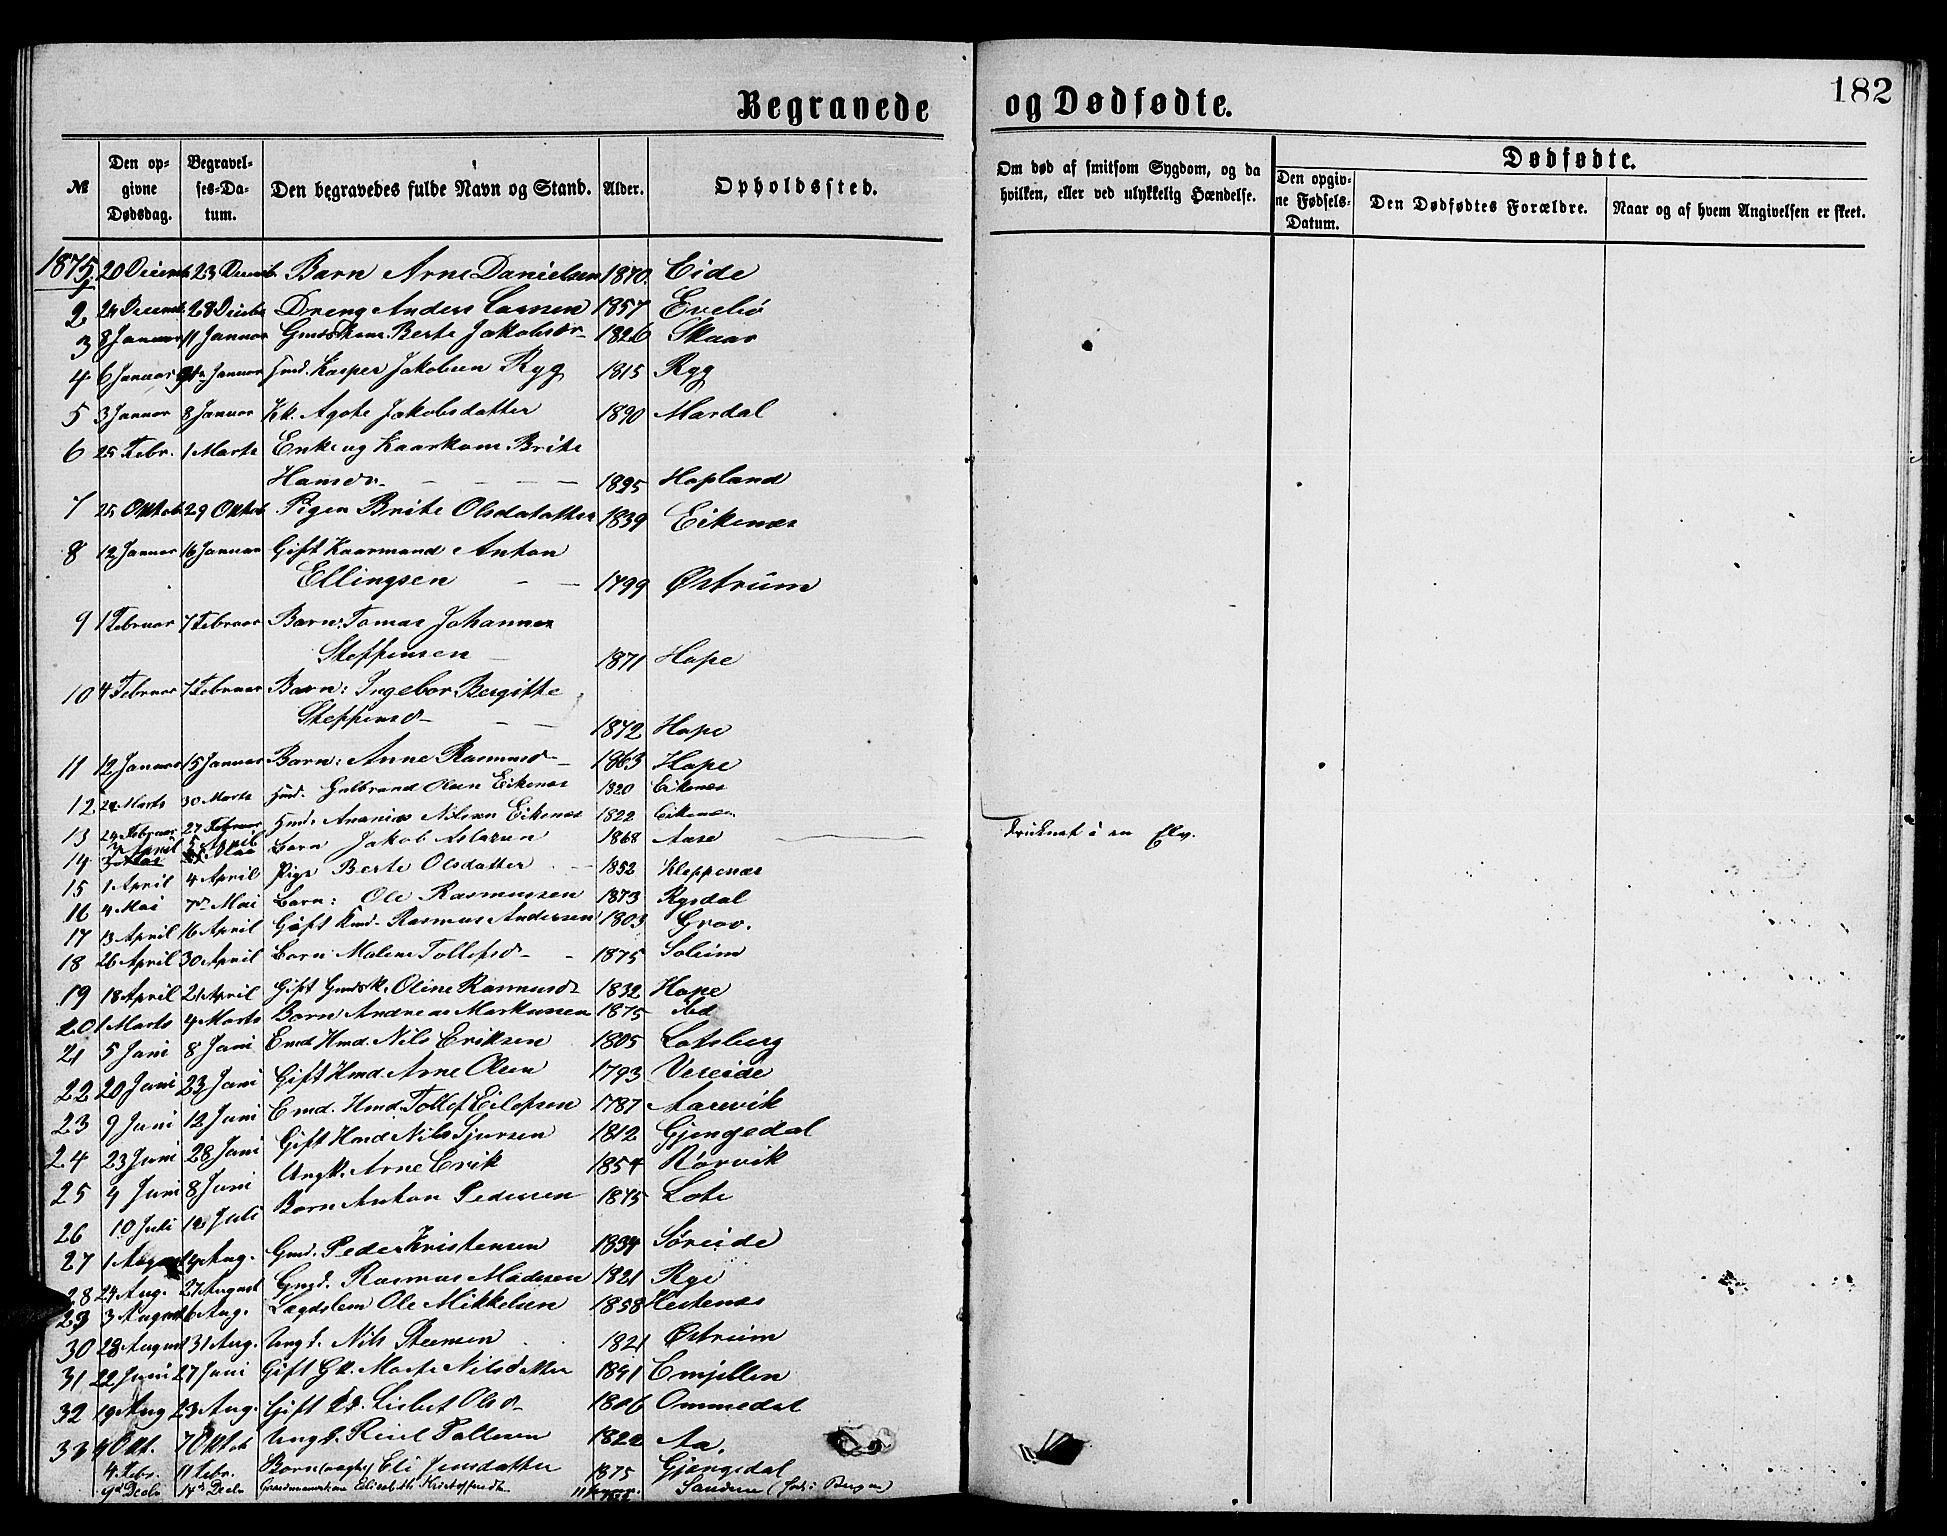 182
Begravede og Dødfødte.
№ Den opgivne Dødsdag. Begravelses-Datum. Den begravedes fulde Navn og Stand. Alder. Opholdssted. Om død af smitsom Sygdom, og da hvilken, eller ved ulykkelig Hændelse. Dødfødte. Den opgivne Fødsels-Datum. Den Dødfødtes Forældre. Naar og af hvem Angivelsen er skeet.
1875
1 20 Decemb. 23 Decemb. Barn Arne Danielsen 1870. Eide
2 24 Decemb. 28 Decbr Dreng Anders Larsen 1857 Evebø
3 8 Januar 11 Januar Berte Jakobsdr 1826 Skaar
4 6 Januar Januar Kasper Jakobsen Ryg 1815 Ryg
5 3 Januar 8 Januar Agote Jakobsdatter 1890 Mardal
6 25 Febr. 1 Marts Enke og Kaarkone Brite
Hansdr. 1825 Hopland
7 25 Oktob 29 Oktob Pigen Brite Olsdatatter 1839 Eikenæs
8 12 Januar 16 Januar Gift Kaarmand Anton
Ellingsen 1799 Østrüm
9 1 Februar 7 Februar Barn: Tomas Johannes
Steffensen 1871 Hope
10 4 Februar 7 Februar Barn: Ingebor Bergitte
Steffensd 1872 Hope
11 12 Januar 15 Januar Barn: Anne Rasmusd 1863 Hope
12 24 Marts 30 Marts Gulbrand Olsen Eikenæs 1820 Eikenæs
13 24 Februar 27 Februar Ananias Nilsen Eikenæs 1822 Eikenæs
14 3 April 5 April Barn Jakob Aslaksen 1868 Aase Druknet i en Elv.
15 1 April 4 April Pige Berte Olsdatter 1852 Kleppenæs
16 4 Mai 7de Mai Barn: Ole Rasmussen 1873 Rygdal
17 13 April 16 April Gift Rasmus Andersen 1803 Grov.
18 26 April 30 April Barn Malene Tollefsd 1875 Soleim
19 18 April 21 April Gift Oline Rasmusd 1832 Hope
20 1 Marts 4 Marts Barn Andreas Markussen 1875 ibd
21 5 Juni 8 Juni Emd Hmd. Nils Eriksen 1805 Lotsberg
22 20 Juni 23 Juni Gift Hmd. Arne Olsen 1793 Vereide
23 9 Juni 12 Juni Emd. Hmd. Tollef Eilefsen 1787 Aarevik
24 23 Juni 28 Juni Gift Hmd Nils Sjursen 1812 Gjengedal
25 4 Juni 8 Juni Ungk. Arne Erik 1854 Rørvik
26 10 Juli 12 Juli Barn Anton Pedersen 1875 Lote
27 1 August 4 Aug. Gmd. Peder Kristensen 1834 Søreide
28 24 Aug. 27 August Gmd. Rasmus Madssen 1821 Ryg
29 3 August 6 Aug. Lægdslem Ole Mikkelsen 1858 Hestenæs
30 28 August 31 Aug. Ungk. Nils Steensen 1821 Østrüm
31 22 Juni 27 Juni Gift Gk. Marte Nilsdatter 1841 Emjellen
32 19 Aug 23 Aug. Gift Lisbet Olsd 1806 Ommedal
33 4 Okt. 7 Oktob Ungk. Reiel Tollesen 1822 Aa.
4 Febr. 11 Febr. Barn Eli Jensdatter 1875 Gjengedal
9de Decbr 14de Decbr Elisabeth Kristoffersdtr Sanden